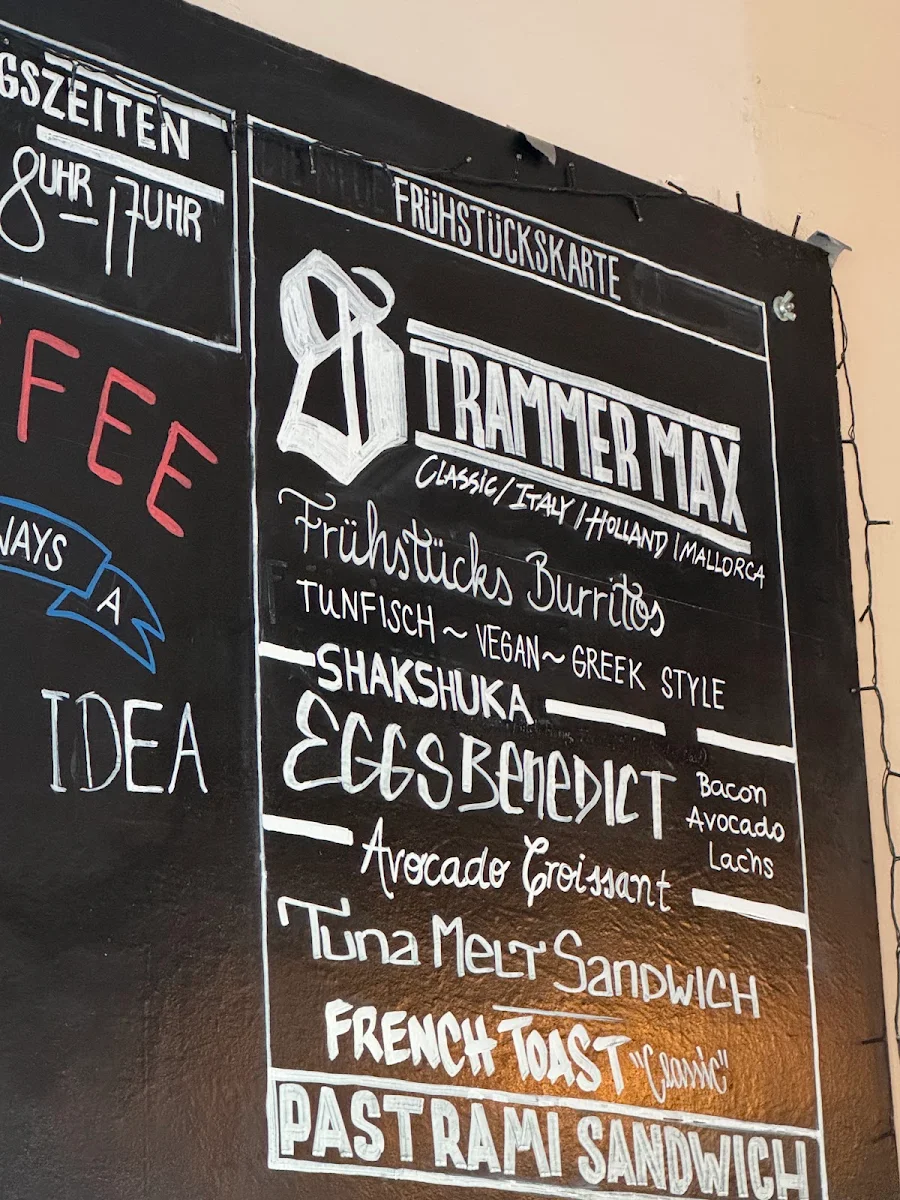 GSZEITEN
8UHR-17UHR
FEE
WAYS
A
IDEA
FRÜHSTÜCKSKARTE
STRAMMER MAX
CLASSIC/ITALY/HOLLAND/MALLORCA
Frühstücks Burritos
TUNFISCH ~ VEGAN ~ GREEK STYLE
SHAKSHUKA
EGGS BENEDICT
Bacon
Avocado
Lachs
Avocado Croissant
Tuna Melt Sandwich
FRENCH TOAST "Classic"
PASTRAMI SANDWICH